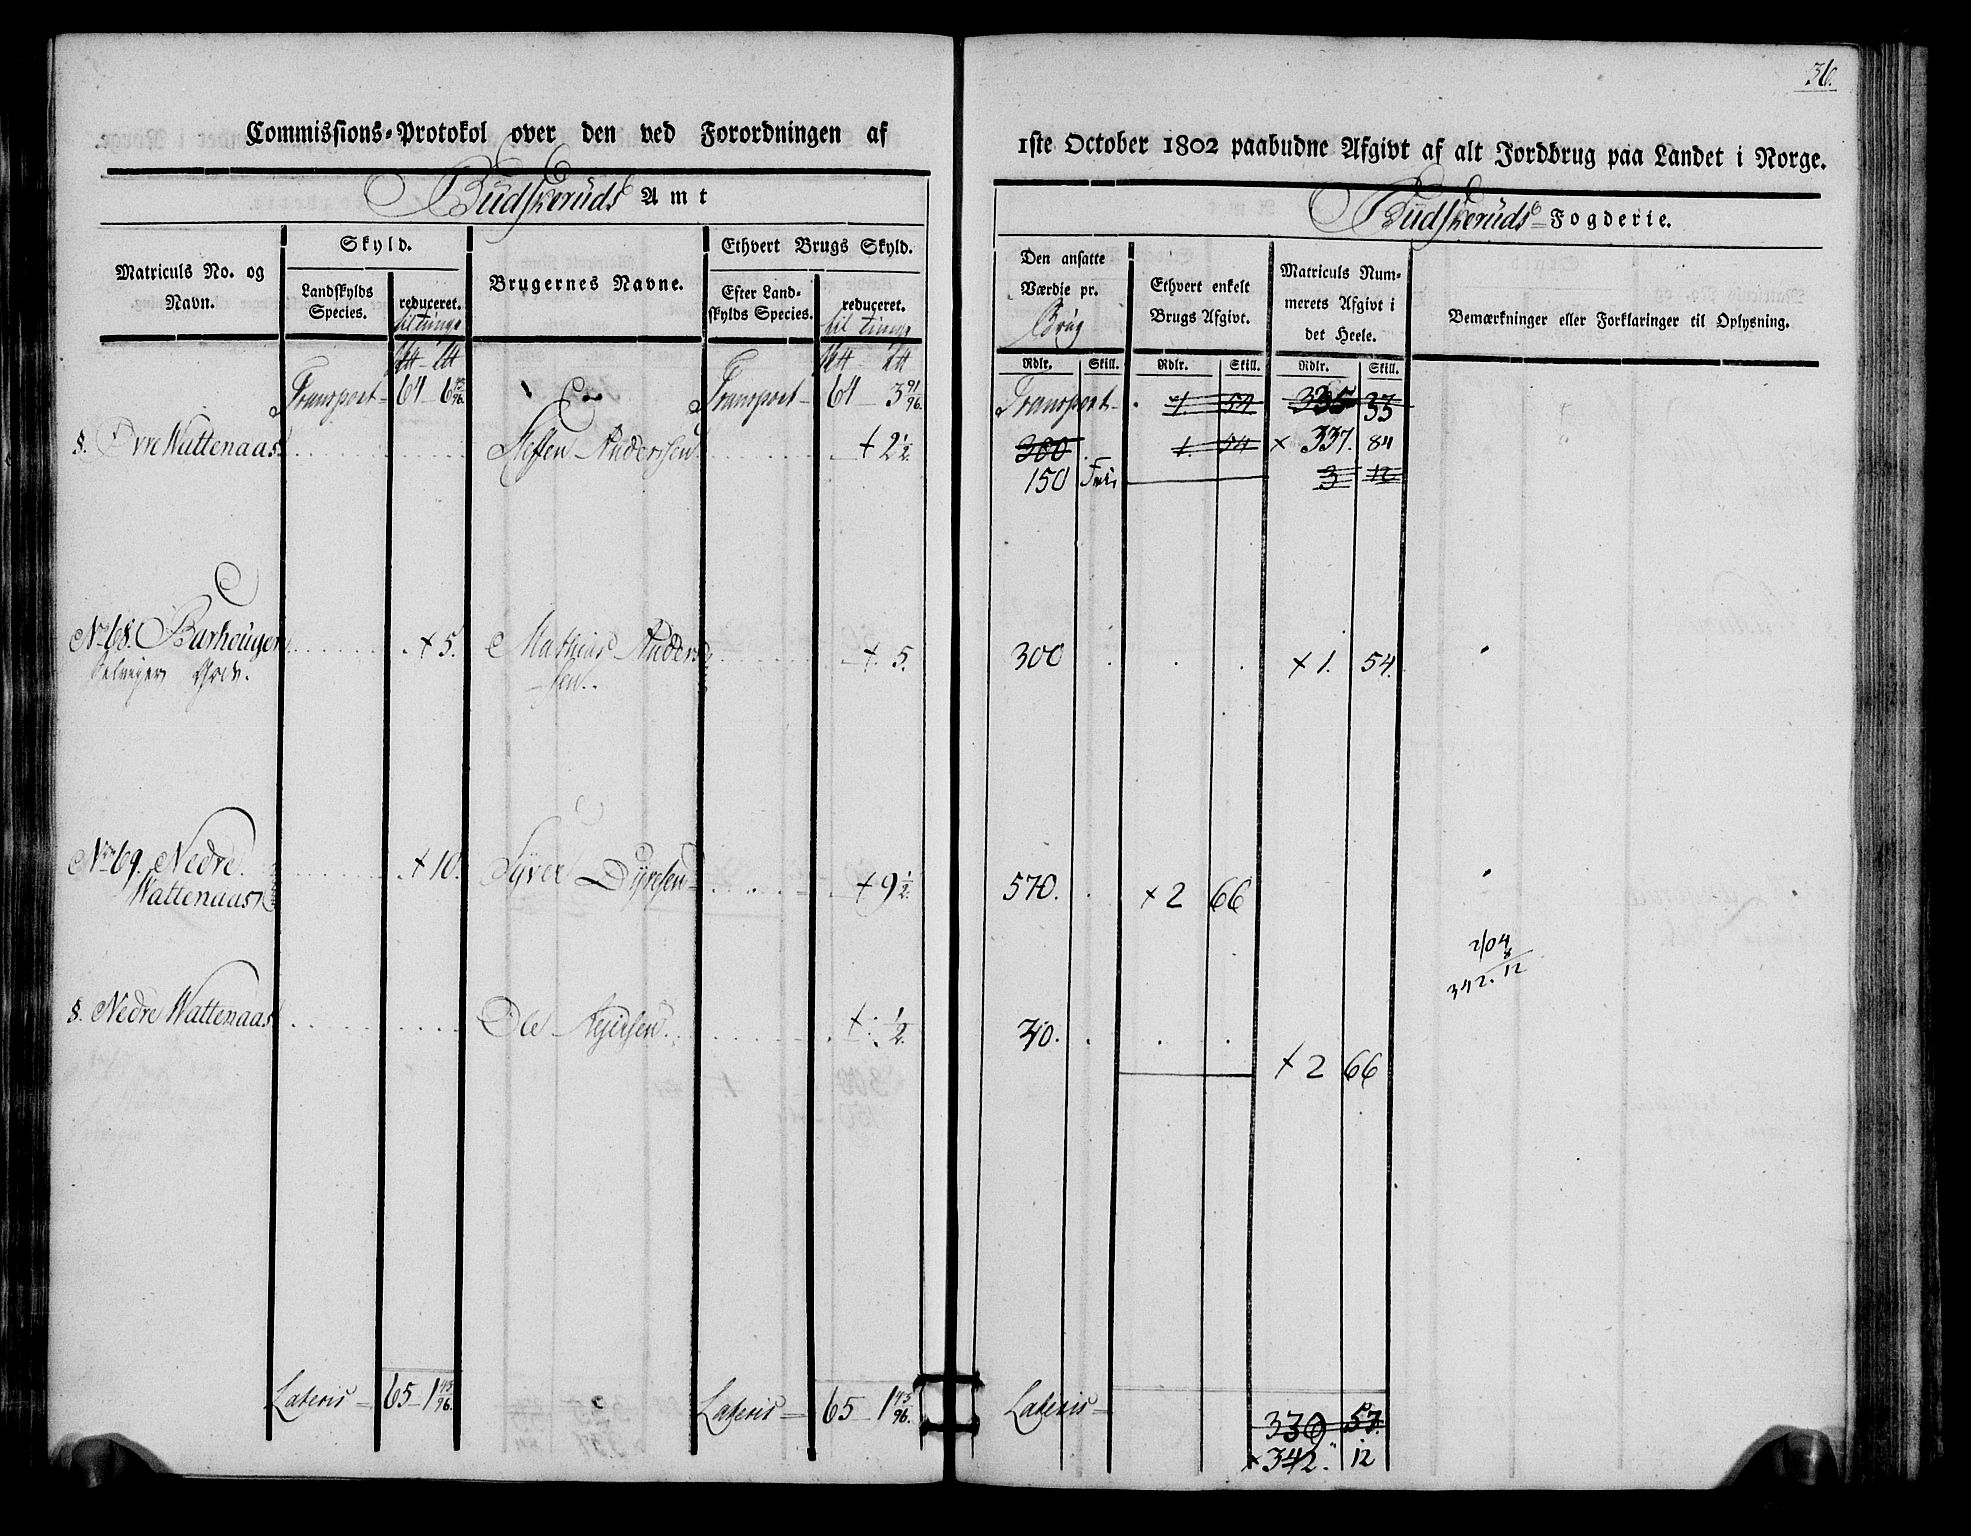 36.
Commissions-Protokol over den ved Forordningen af
1ste October 1802 paabudne Afgivt af alt Jordbrug paa Landet i Norge.
Budskeruds Amt
Budskeruds Fogderie.
Matriculs No. og Navn.
Skyld.
Landskylds Species.
reduceret.
til tunge
Brugernes Navne.
Ethvert Brugs Skyld.
Efter Landskylds Species.
reduceret.
til tunge
Den ansatte Værdie pr.
Brug
Rdlr. Skill.
Ethvert enkelt Brugs Afgivt.
Rdlr. Skill.
Matriculs Nummerets Afgivt i det Heele.
Rdlr. Skill.
Bemærkninger eller Forklaringer til Oplysning.
Transport 64 6 45/96. Transport 64 3 91/96. Transport 1 54 335 33
§. Øvre Wattenaas Steffen Andersen + 2 1/2. 300 1. 54 × 337. 84
150 Fri, 3 12
No 68. Barhouger + 5. Mathias Andersen +. 5. 300 × 1. 54.
No 69. Nedre Wattenaas + 10. Syver Dyresen + 9 1/2. 570. × 2 66
204
8
342. 12
§. Nedre Wattenaas Ole + 1/2. 30.
+ 2 66
Lateris 65 1 45/96. Lateris 65 1 45/96. Lateris
339 57.
× 342. 12